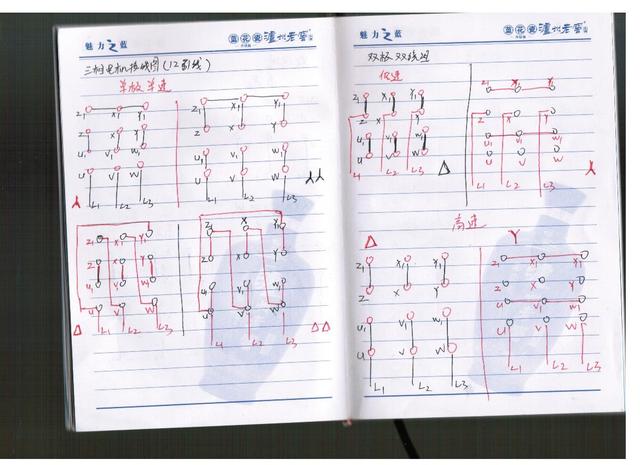 魅力之蓝
蓝花瓷 泸州老窖
三相电机接线图(12引线)
单极单速
Z1 X1 Y1
Z X Y
U1 V1 W1
U V W
L1 L2 L3
Z1 X1 Y1
Z X Y
U1 V1 W1
U V W
L1 L2 L3
Z1 X1 Y1
Z X Y
U1 V1 W1
U V W
L1 L2 L3
Z1 X Y1
Z X Y
U V1 W1
U V W
L1 L2 L3
魅力之蓝
蓝花瓷 泸州老窖
双极双线速
低速
Z1 X1 Y1
Z X Y
U1 V1 W1
U V W
L1 L2 L3
Z1 X1 Y1
Z X Y
U1 V1 W1
U V W
L1 L2 L3
高速
Y
Z1 X1 Y1
Z X Y
U1 V1 W1
U V W
L1 L2 L3
Z1 X1 Y1
Z X Y
U1 V1 W1
U V W
L1 L2 L3